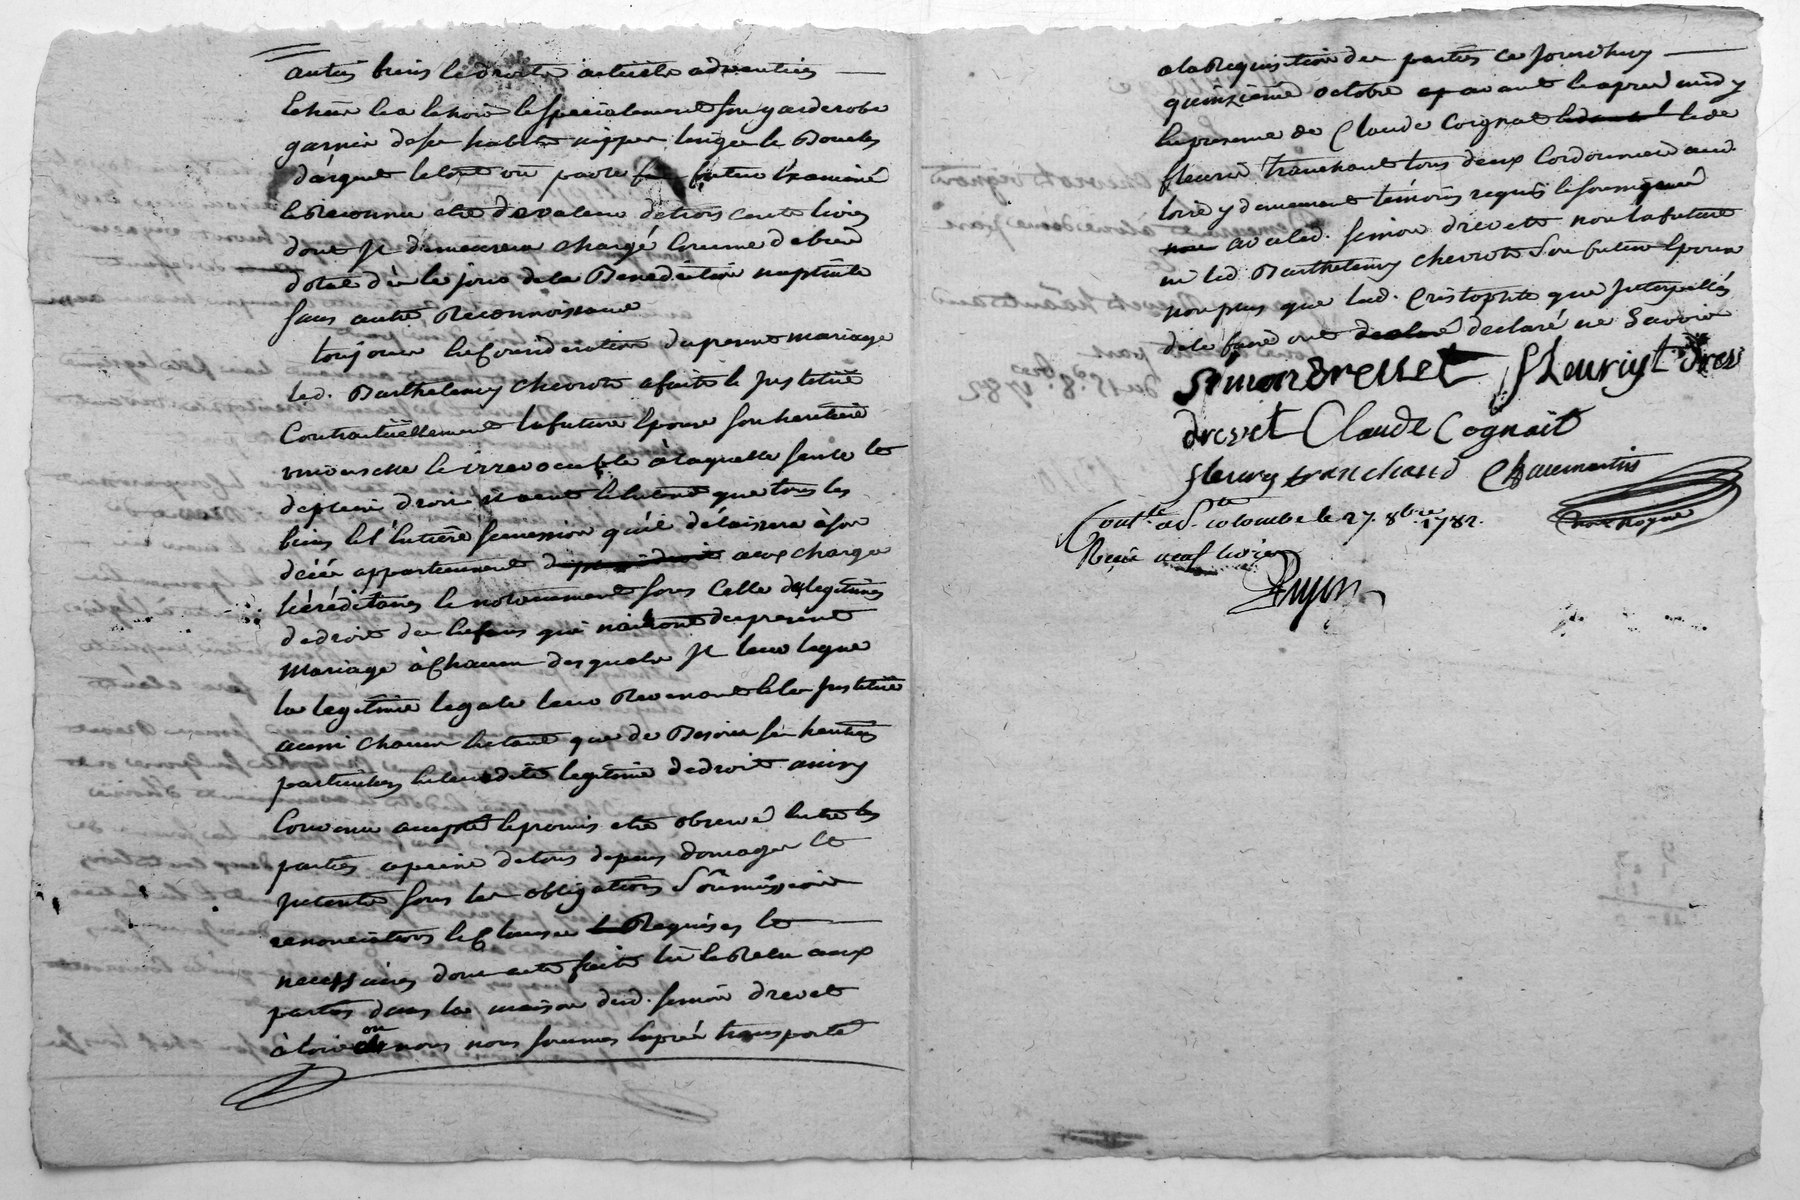 autres biens et droits actuels adventiers
et specialement son garderobe
garnie de ses habits nippes linges et Boucles
d'argent le tout ou futur examiné
et Reconnu etre de valeur de trois cents livres
dont Il demeurera chargé comme de bien
dotal dès le jour de la Benediction nuptiale
sans autre Reconnoissance
toujours en Consideration du present mariage
led. Barthelemy chevrot a fait et Institué
Contractuellement la future Epouse son heritiere
universelle et irrevocable à laquelle seule et
de plein droit il veut et entend que tous les
biens et entiere succession qu'il délaissera à son
décès appartiennent aux charges
héréditaires et notamment sous celle de legitimes
de droit des Enfans qui naitront du present
Mariage à Chacun desquels Il leur legue
la legitime legale leur Revenant et les Institue
aussi chacun en tant que de Besoin ses heritiers
particuliers en leurdite legitime de droit ainsy
Convenu accepté et promis etre observé entre les
parties a peine de tous depens domages et
interets sous les obligations Soûmissions
renonciations et Clauses Requises et
necessaires dont acte fait lu et Relu aux
parties dans la maison dud. Simon drevet
à loire ou nous nous sommes exprès transporté
a la Requisition des parties ce Jourd'huy
quinzieme octobre avant le apres midy
En presence de Claude Coignat et de
fleurie tranchant tous deux Cordonniers aud.
loire y demeurant temoins requis et soussignés
avec led. Simon drevet non la future
ni led. Barthelemy chevrot Son futur Epoux
non plus que lad. Cristophle que Interpellés
de le faire ont declaré ne Savoir
Simon drevet fleuriyt drev
drevet Claude Cognait
fleury tranchand Chaumartin
Contlé. a Ste. colombe le 27. 8bre 1782.
Reçu neuf livres